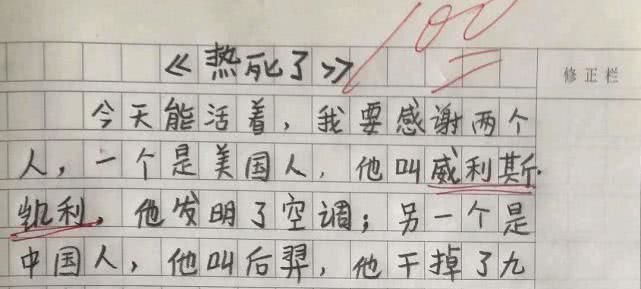 100
《热死了》
修正栏
今天能活着，我要感谢两个
人，一个是美国人，他叫威利斯·
凯利，他发明了空调；另一个是
中国人，他叫后羿，他干掉了九